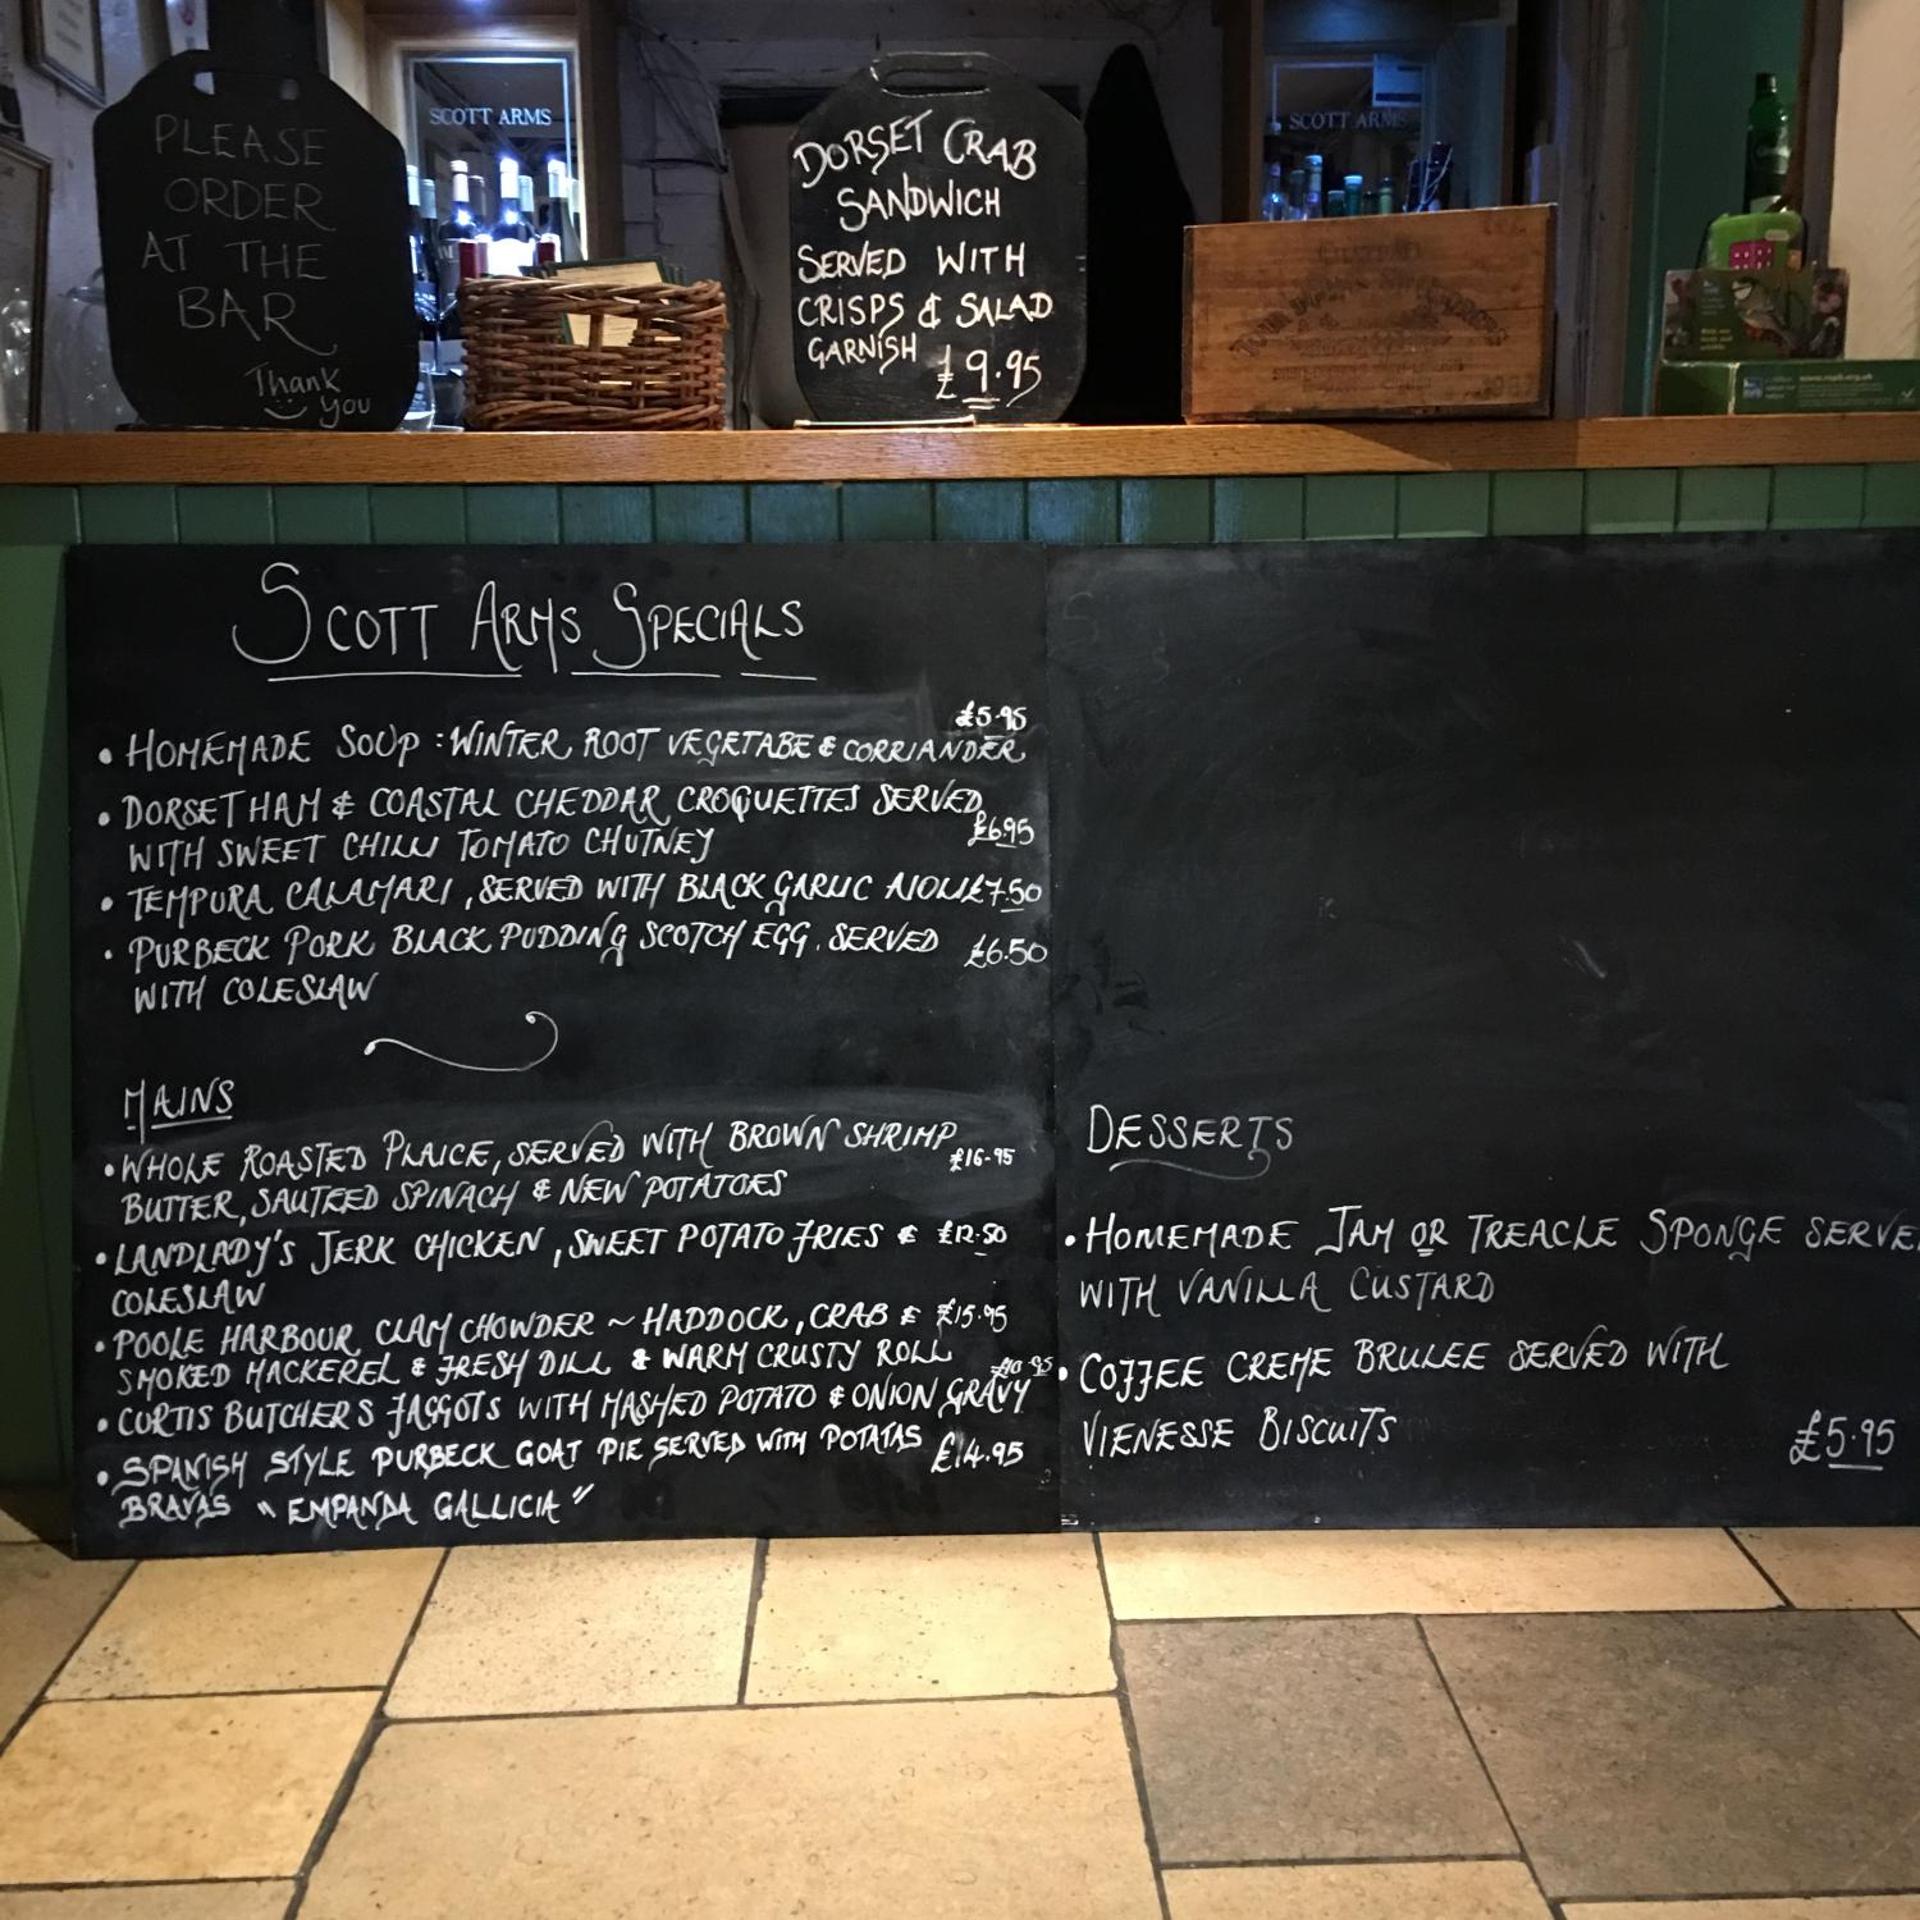 PLEASE
ORDER
AT THE
BAR
Thank
you
SCOTT ARMS
DORSET CRAB
SANDWICH
SERVED WITH
CRISPS & SALAD
GARNISH £9.95
SCOTT ARMS
SCOTT ARMS SPECIALS
£5.95
• HOMEMADE SOUP : WINTER ROOT VEGETABE & CORRIANDER
• DORSET HAM & COASTAL CHEDDAR CROQUETTES SERVED
£6.95
WITH SWEET CHILLI TOMATO CHUTNEY
• TEMPURA CALAMARI, SERVED WITH BLACK GARLIC AIOLI £7.50
• PURBECK PORK BLACK PUDDING SCOTCH EGG. SERVED £6.50
WITH COLESLAW
MAINS
• WHOLE ROASTED PLAICE, SERVED WITH BROWN SHRIMP £16.95
BUTTER, SAUTEED SPINACH & NEW POTATOES
• LANDLADY'S JERK CHICKEN, SWEET POTATO FRIES & £12.50
COLESLAW
• POOLE HARBOUR CLAM CHOWDER ~ HADDOCK, CRAB & £15.95
SMOKED MACKEREL & FRESH DILL & WARM CRUSTY ROLL
£10.95
• CURTIS BUTCHERS FAGGOTS WITH MASHED POTATO & ONION GRAVY
• SPANISH STYLE PURBECK GOAT PIE SERVED WITH POTATAS £14.95
BRAVAS "EMPANDA GALLICIA"
DESSERTS
• HOMEMADE JAM OR TREACLE SPONGE SERVE
WITH VANILLA CUSTARD
• COFFEE CREME BRULEE SERVED WITH
VIENESSE BISCUITS
£5.95